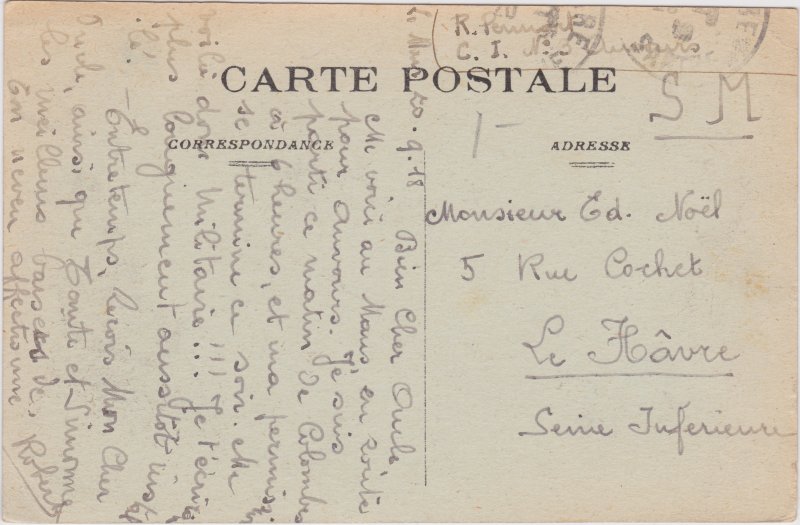 R. Pennart
C. I. N° 3
CARTE POSTALE
CORRESPONDANCE
ADRESSE
S M
1-
Monsieur Ed. Noël
5 Rue Cochet
Le Hâvre
Seine Inferieure
Le Mans 20.9.18
Bien Cher Oncle
Me voici au Mans en route
pour Auvours. Je suis
parti ce matin de Colombes
à 6 heures, et ma permiss.
se termine ce soir. Me
voilà donc Militaire!!! Je t'écrirai
plus longuement aussitôt inst
lé.
- Entretemps, Reçois Mon Cher
Oncle, ainsi que Tante et Simonne
les meilleurs baisers de
ton neveu affectionné
Robert